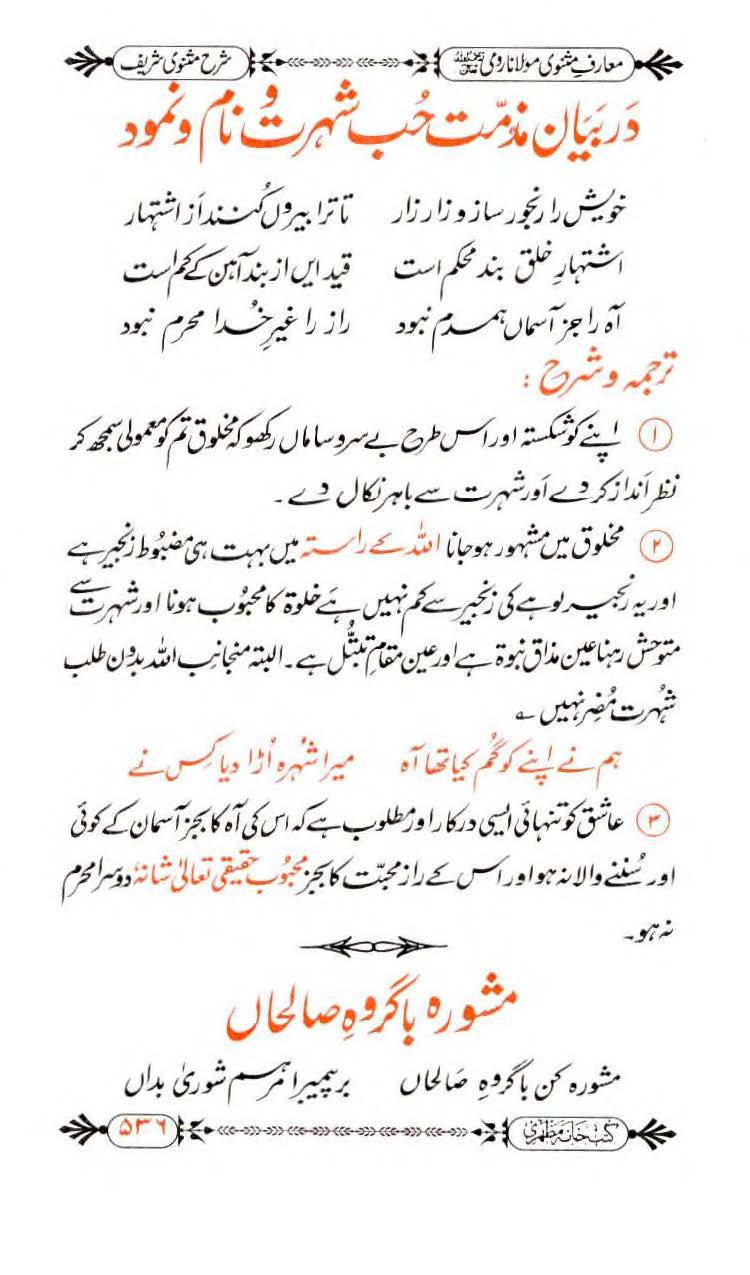 معارفِ مثنوی مولانا رومی رحمہ اللہ تعالیٰ
شرح مثنوی شریف
در بیان مذمّت حُب شہرت و نام و نمود
خویش را رنجور ساز و زار زار تا ترا بیروں کُنند از اشتہار
اشتہارِ خلق بند محکم است قید ایں از بند آہن کے کم است
آہ را جز آسماں ہمدم نبود راز را غیرِ خُدا محرم نبود
ترجمہ و شرح :
۱ اپنے کو شکستہ اور اس طرح بے سر و ساماں رکھو کہ مخلوق تم کو معمولی سمجھ کر
نظر انداز کر دے اَور شہرت سے باہر نکال دے ۔
۲ مخلوق میں مشہور ہو جانا اللہ کے راستہ میں بہت ہی مضبُوط زنجیر ہے
اور یہ زنجیر لوہے کی زنجیر سے کم نہیں ہَے خلوۃ کا محبُوب ہونا اور شہرت سے
متوحش رہنا عین مذاق نبوۃ ہے اور عین مقامِ تبتُّل ہے ۔ البتہ منجانبِ اللہ بدُون طلب
شہُرت مُضِر نہیں ؎
ہم نے اپنے کو گُم کیا تھا آہ میرا شہُرہ اُڑا دیا کِس نے
۳ عاشق کو تنہائی ایسی درکار اور مطلوب ہے کہ اس کی آہ کا بجز آسمان کے کوئی
اور سُننے والا نہ ہو اور اس کے راز محبّت کا بجز محبُوب حقیقی تعالیٰ شانہٗ دوسرا محرم
نہ ہو ۔
مشورہ با گروہِ صالحاں
مشورہ کن با گروہِ صَالحاں بر پیمبرا مرہم شوریٰ بداں
کتب خانہ مظہری
۵۳۶